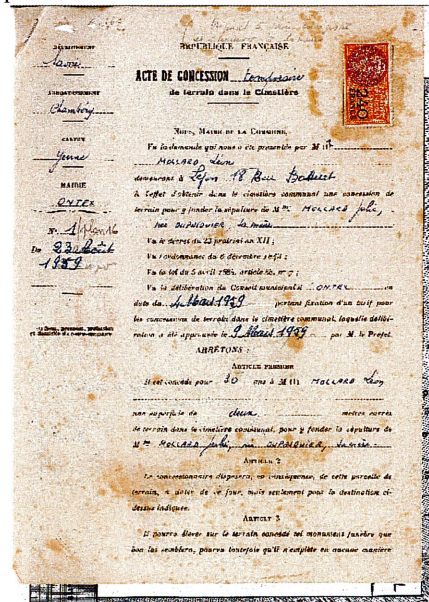 DÉPARTEMENT
Savoie
ARRONDISSEMENT
Chambéry
CANTON
Yenne
MAIRIE
ONTEX
N° 1
Du 23 Août
1959
RÉPUBLIQUE FRANÇAISE
ACTE DE CONCESSION Temporaire
de terrain dans le Cimetière
240
NOUS, MAIRE DE LA COMMUNE,
Vu la demande qui nous a été présentée par M (1)
MOLLARD Léon
demeurant à Lyon 18 Rue
à l'effet d'obtenir dans le cimetière communal une concession de
terrain pour y fonder la sépulture de M me MOLLARD
née DUPASQUIER, sa mère
Vu le décret du 23 prairial an XII ;
Vu l'ordonnance du 6 décembre 1843 ;
Vu la loi du 5 avril 1884, article 68, n° 7 ;
Vu la délibération du Conseil municipal d ONTEX en
date du 4 Mars 1959 portant fixation d'un tarif pour
les concessions de terrain dans le cimetière communal, laquelle délibé-
ration a été approuvée le 9 Mars 1959 par M. le Préfet.
ARRÊTONS :
ARTICLE PREMIER
Il est concédé pour 30 ans à M (1) MOLLARD Léon
une superficie de deux mètres carrés
de terrain dans le cimetière communal, pour y fonder la sépulture de
M me MOLLARD née DUPASQUIER, sa mère
ARTICLE 2
Le concessionnaire disposera, en conséquence, de cette parcelle de
terrain, à dater de ce jour, mais seulement pour la destination ci-
dessus indiquée.
ARTICLE 3
Il pourra élever sur le terrain concédé tel monument funèbre que
bon lui semblera, pourvu toutefois qu'il n'excède en aucune manière
(1) Nom, prénoms, profession
et domicile du concessionnaire